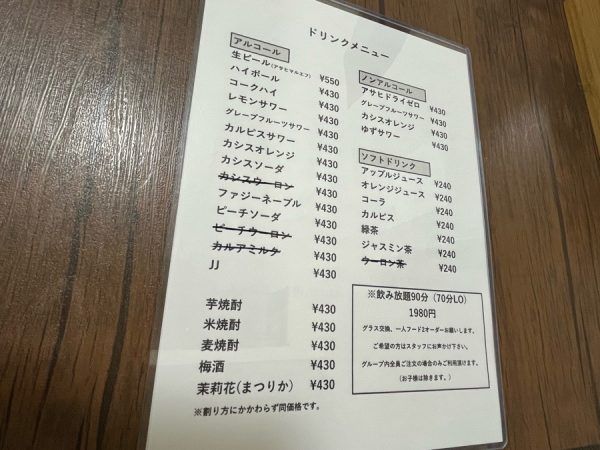 ドリンクメニュー
アルコール
生ビール(アサヒマルエフ) ¥550
ハイボール ¥430
コークハイ ¥430
レモンサワー ¥430
グレープフルーツサワー ¥430
カルピスサワー ¥430
カシスオレンジ ¥430
カシスソーダ ¥430
カシスウーロン ¥430
ファジーネーブル ¥430
ピーチソーダ ¥430
ピーチウーロン ¥430
カルアミルク ¥430
JJ ¥430
芋焼酎 ¥430
米焼酎 ¥430
麦焼酎 ¥430
梅酒 ¥430
茉莉花(まつりか) ¥430
※割り方にかかわらず同価格です。
ノンアルコール
アサヒドライゼロ ¥430
グレープフルーツサワー ¥430
カシスオレンジ ¥430
ゆずサワー ¥430
ソフトドリンク
アップルジュース ¥240
オレンジジュース ¥240
コーラ ¥240
カルピス ¥240
緑茶 ¥240
ジャスミン茶 ¥240
ウーロン茶 ¥240
※飲み放題90分(70分LO)
1980円
グラス交換、一人フード2オーダーお願いします。
ご希望の方はスタッフにお声かけ下さい。
グループ内全員ご注文の場合のみご利用頂けます。
(お子様は除きます。)